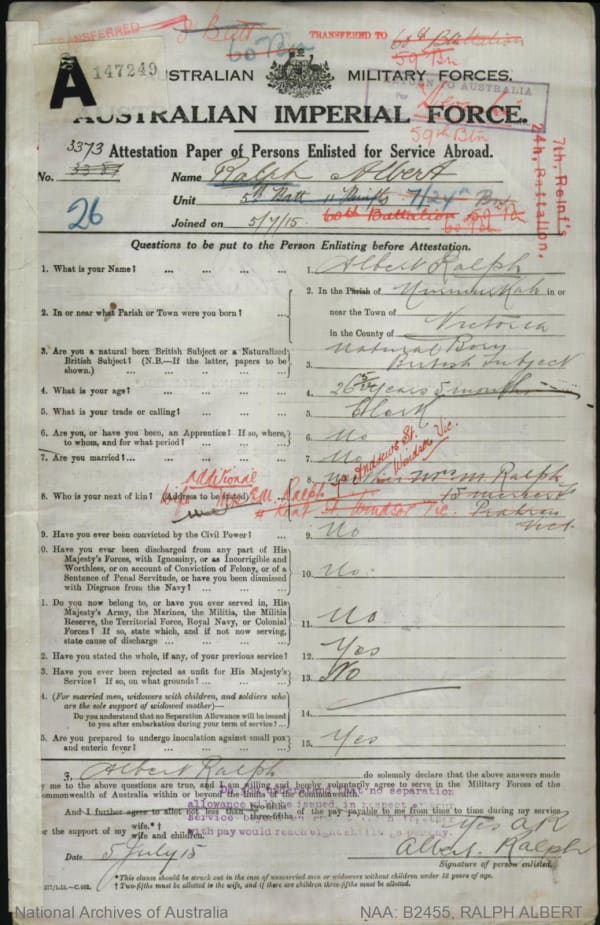 TRANSFERRED
TRANSFERRED TO
60th Battalion
59 Bn
60 Bn
A 147249
AUSTRALIAN MILITARY FORCES.
RETURN TO AUSTRALIA
AUSTRALIAN IMPERIAL FORCE.
59th Btn
3373 Attestation Paper of Persons Enlisted for Service Abroad.
No. Name Ralph Albert
26
Unit 5th Batt 11 Reinfts 7/24th Bn
60th Battalion 59 Bn
60 Bn
7th, Reinf's
24th, Battalion.
Joined on 5/7/15
Questions to be put to the Person Enlisting before Attestation.
1. What is your Name? ... ... ... 1. Albert Ralph
2. In or near what Parish or Town were you born? ... 2. In the Parish of Nurmurkah in or
near the Town of
in the County of Victoria
3. Are you a natural born British Subject or a Naturalized British Subject? (N.B.—If the latter, papers to be shown.) ... ... 3. Natural Born British Subject
4. What is your age? ... ... ... 4. 26 years 5 months
5. What is your trade or calling? ... ... 5. Clerk
6. Are you, or have you been, an Apprentice? If so, where, to whom, and for what period? ... ... 6. No
7. Are you married? ... ... ... 7. No
additional
Andrews St. Windsor Vic.
8. Who is your next of kin? (Address to be stated) ... 8. Mother Mrs M. Ralph
Wife Mrs E.M. Ralph
Kent St Windsor Vic.
Prahran
Vict.
9. Have you ever been convicted by the Civil Power? ... 9. No
0. Have you ever been discharged from any part of His Majesty's Forces, with Ignominy, or as Incorrigible and Worthless, or on account of Conviction of Felony, or of a Sentence of Penal Servitude, or have you been dismissed with Disgrace from the Navy? ... ... 10. No.
1. Do you now belong to, or have you ever served in, His Majesty's Army, the Marines, the Militia, the Militia Reserve, the Territorial Force, Royal Navy, or Colonial Forces? If so, state which, and if not now serving, state cause of discharge ... ... ... 11. No
2. Have you stated the whole, if any, of your previous service? 12. Yes
3. Have you ever been rejected as unfit for His Majesty's Service? If so, on what grounds? ... ... 13. No
4. (For married men, widowers with children, and soldiers who are the sole support of widowed mother)—
Do you understand that no Separation Allowance will be issued to you after embarkation during your term of service? ... 14.
5. Are you prepared to undergo inoculation against small pox and enteric fever? ... ... ... 15. Yes
I, Albert Ralph do solemnly declare that the above answers made
by me to the above questions are true, and I am willing and hereby voluntarily agree to serve in the Military Forces of the
Commonwealth of Australia within or beyond the limits of the Commonwealth.
understand that no separation
allowance
And I further agree to allot not less than two-fifths three-fifths of the pay payable to me from time to time during my service
for the support of my wife.*† wife and children.
with pay would reach
Yes AR
Date 5 July 15
Albert Ralph
Signature of person enlisted.
* This clause should be struck out in the case of unmarried men or widowers without children under 18 years of age.
† Two-fifths must be allotted to the wife, and if there are children three-fifths must be allotted.
National Archives of Australia
NAA: B2455, RALPH ALBERT